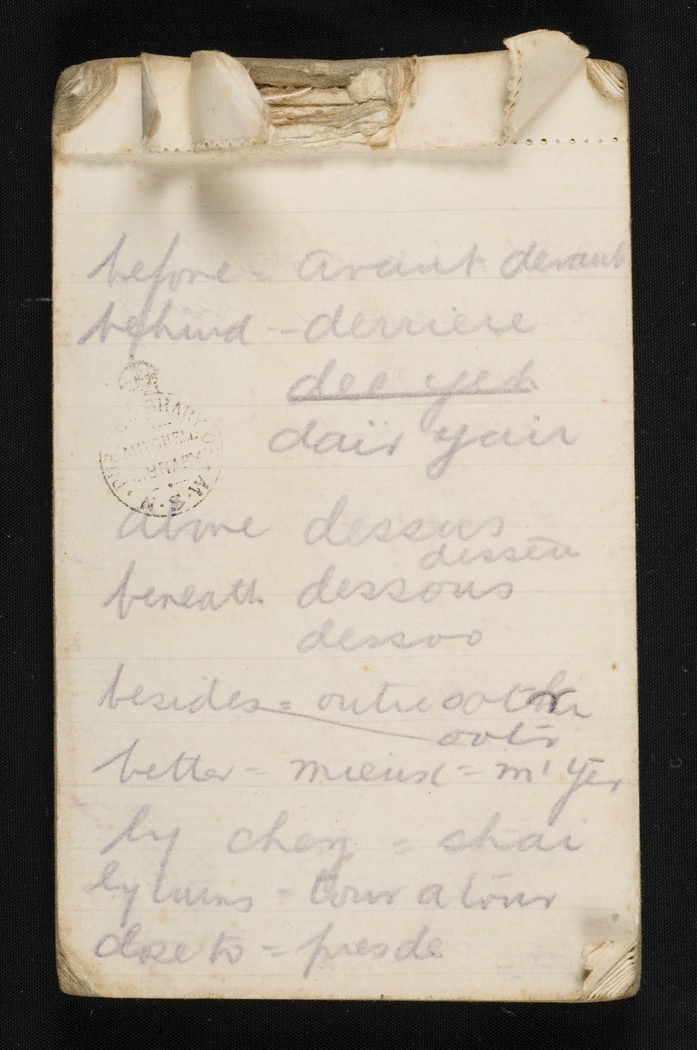 before = avant devant
behind - derriere
dee yeh
dair yair
above dessus
desseu
beneath dessous
dessoo
besides = outre
ootr
better = mieux = m' yer
by chez = shai
by turns = tour a tour
close to = pres de
MITCHELL
LIBRARY
N.S.W.